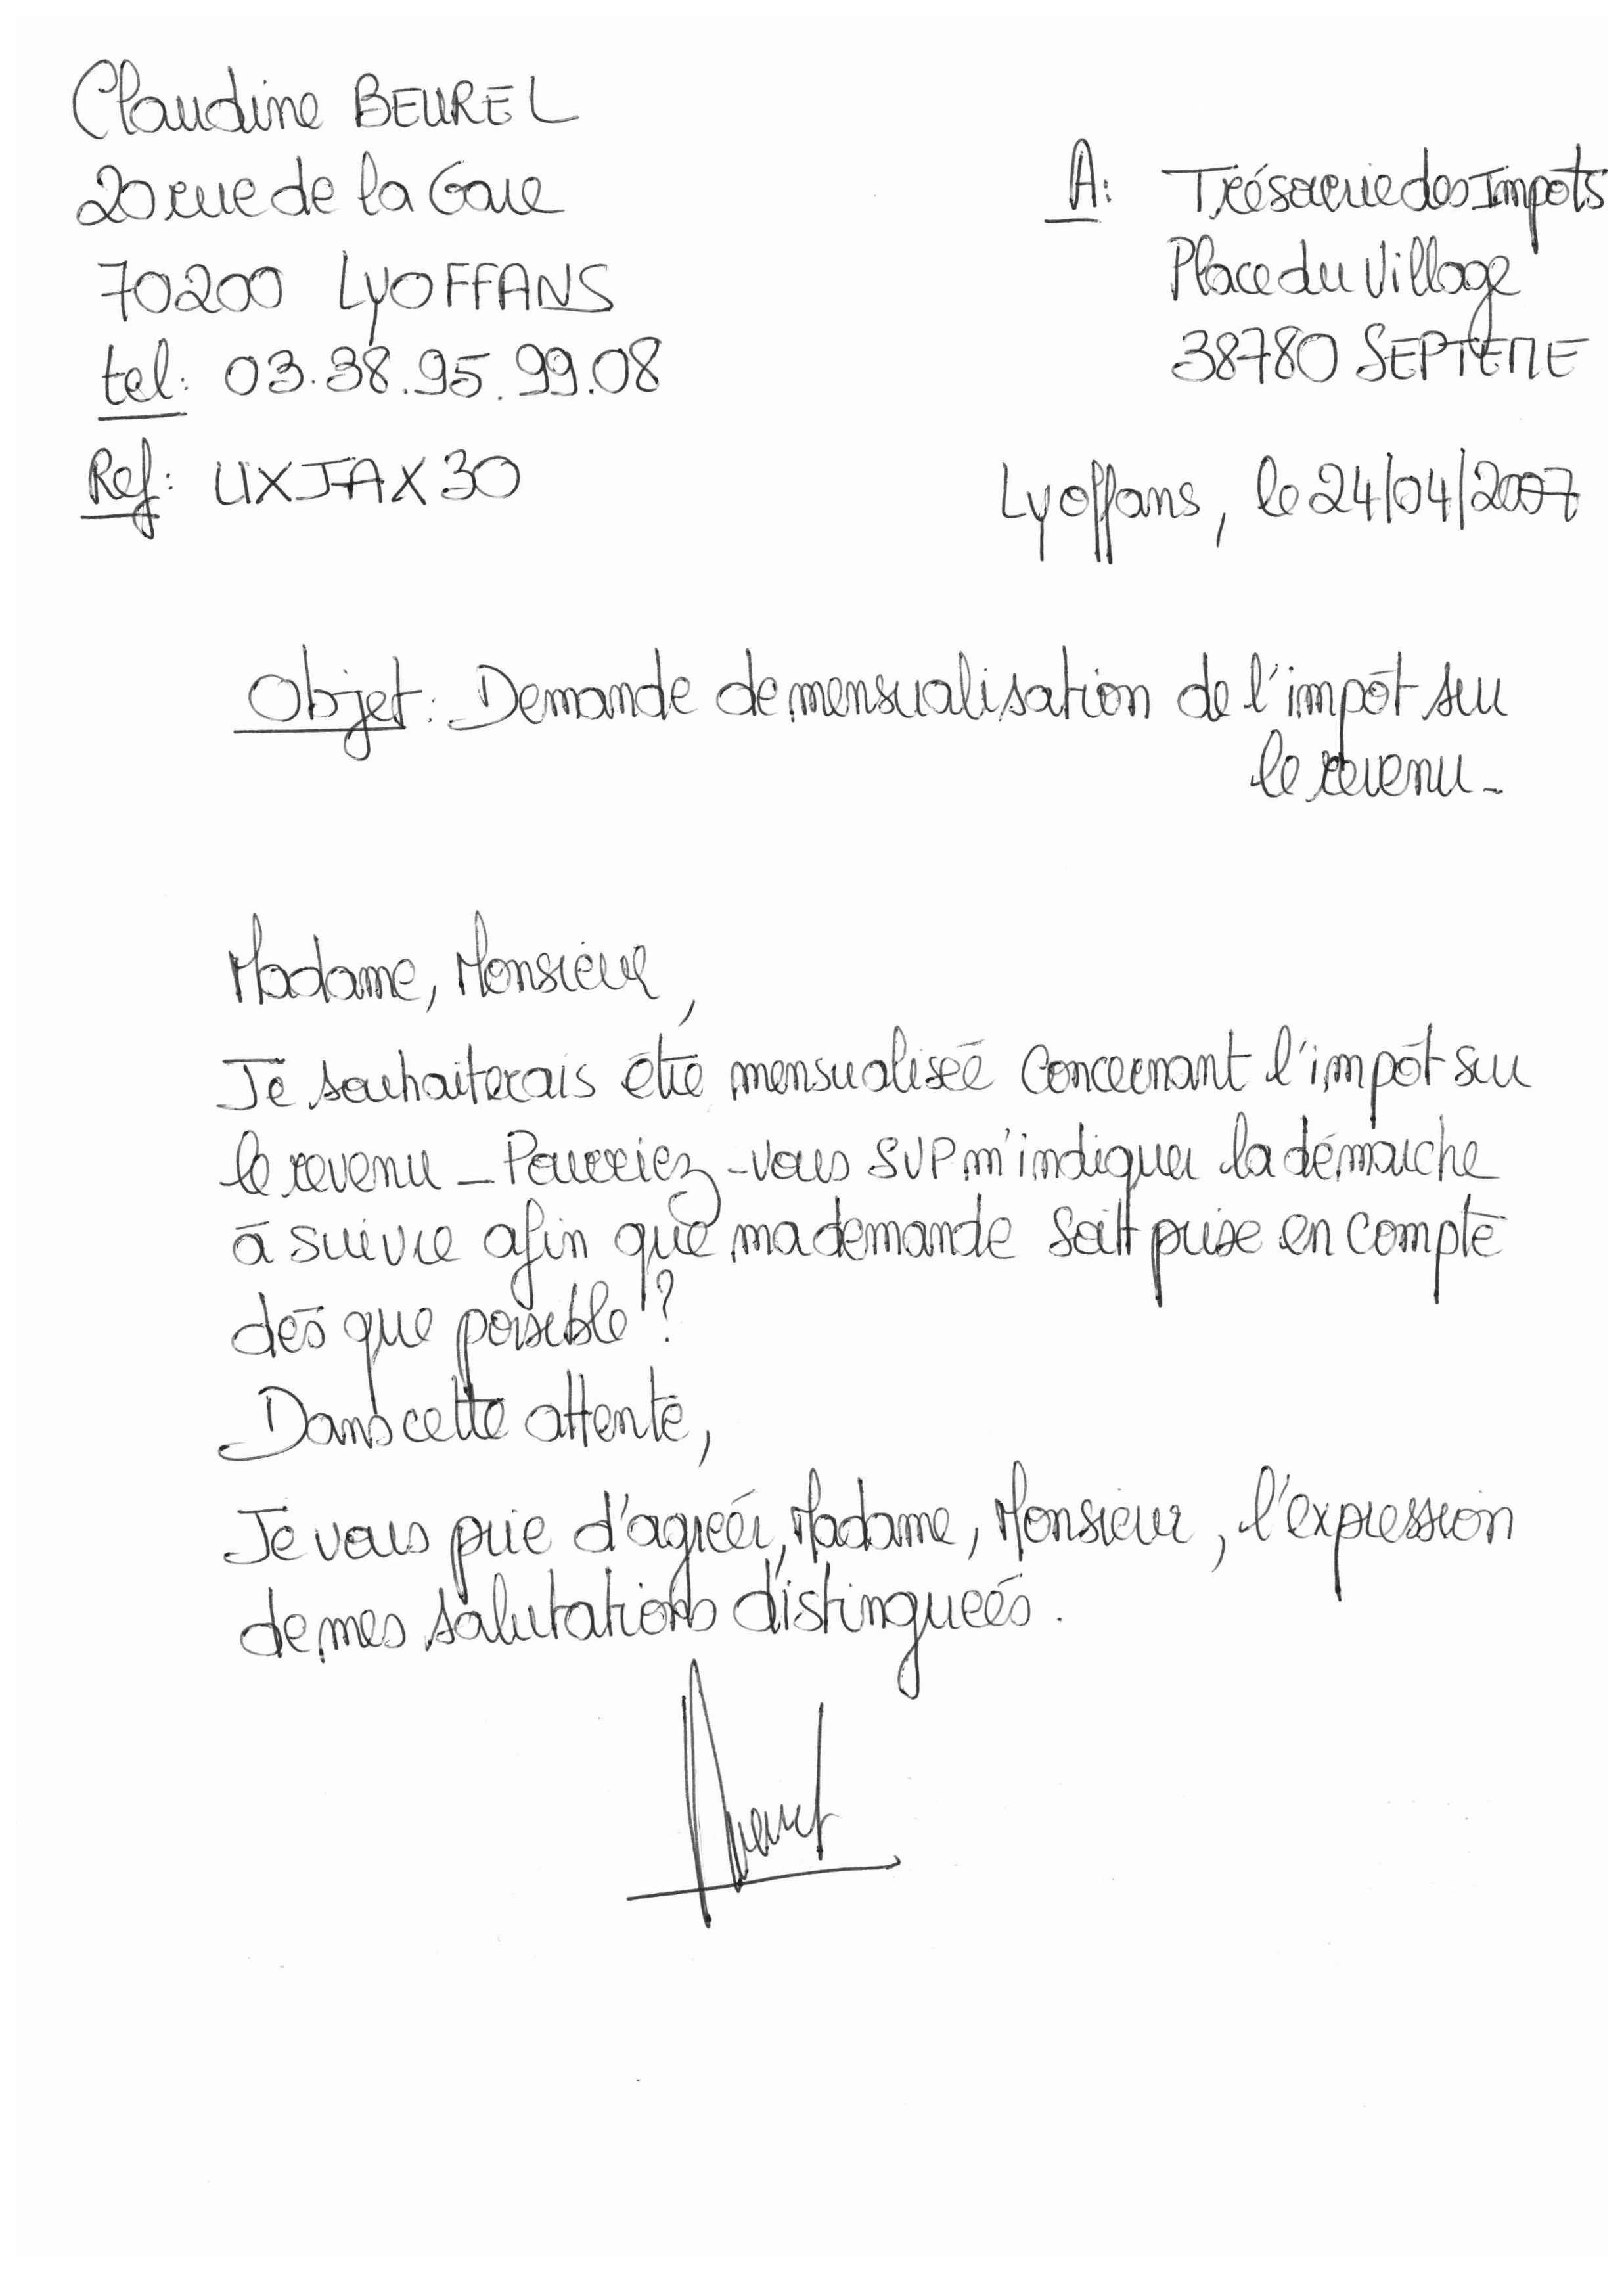 Claudine BEUREL
20 rue de la Gare
70200 LYOFFANS
tel: 03.38.95.99.08
Ref: UXJAX30
A: Trésorerie des Impots
Place du Village
38780 SEPTEME
Lyoffans, le 24/04/2007
Objet: Demande de mensualisation de l'impôt sur
le revenu_
Madame, Monsieur,
Je souhaiterais être mensualisée concernant l'impôt sur
le revenu _ Pourriez-vous SVP m'indiquer la démarche
à suivre afin que ma demande soit prise en compte
dès que possible ?
Dans cette attente,
Je vous prie d'agréer, Madame, Monsieur, l'expression
de mes salutations distinguées.